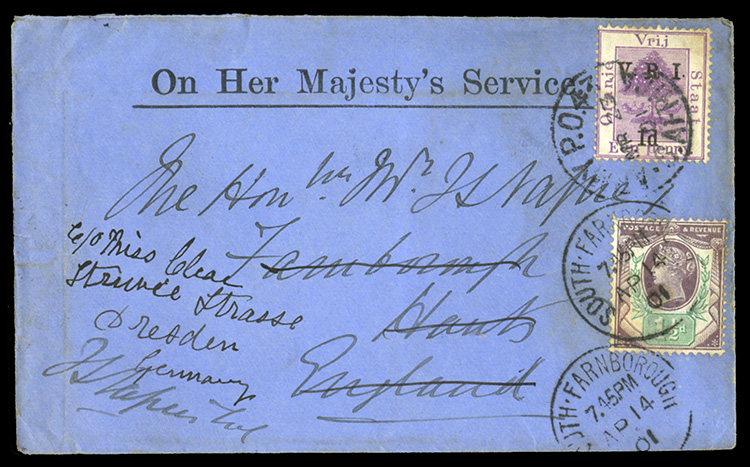 On Her Majesty's Service.
Vrij
Staat
V. R. I.
1d
Een Penny
The Hon
Farnborough
Hants
England
c/o Miss Clear
Struvée Strasse
Dresden
Germany
POSTAGE & REVENUE
1½d
SOUTH·FARNBOROUGH
7.45PM
AP 14
01
SOUTH·FARNBOROUGH
7.45PM
AP 14
01